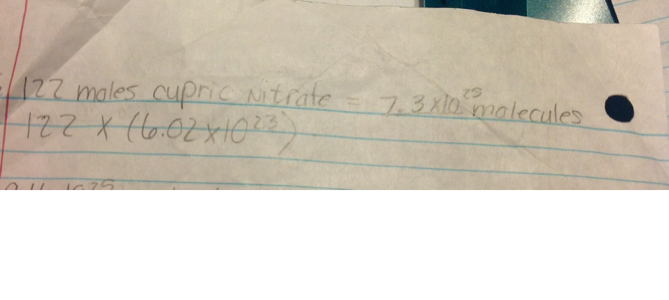 122 moles cupric Nitrate = 7.3x10²⁵ molecules
122 x (6.02x10²³)